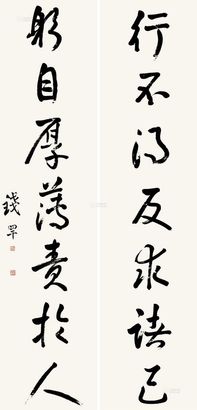 行不得反求諸己
躬自厚薄責於人
錢罕